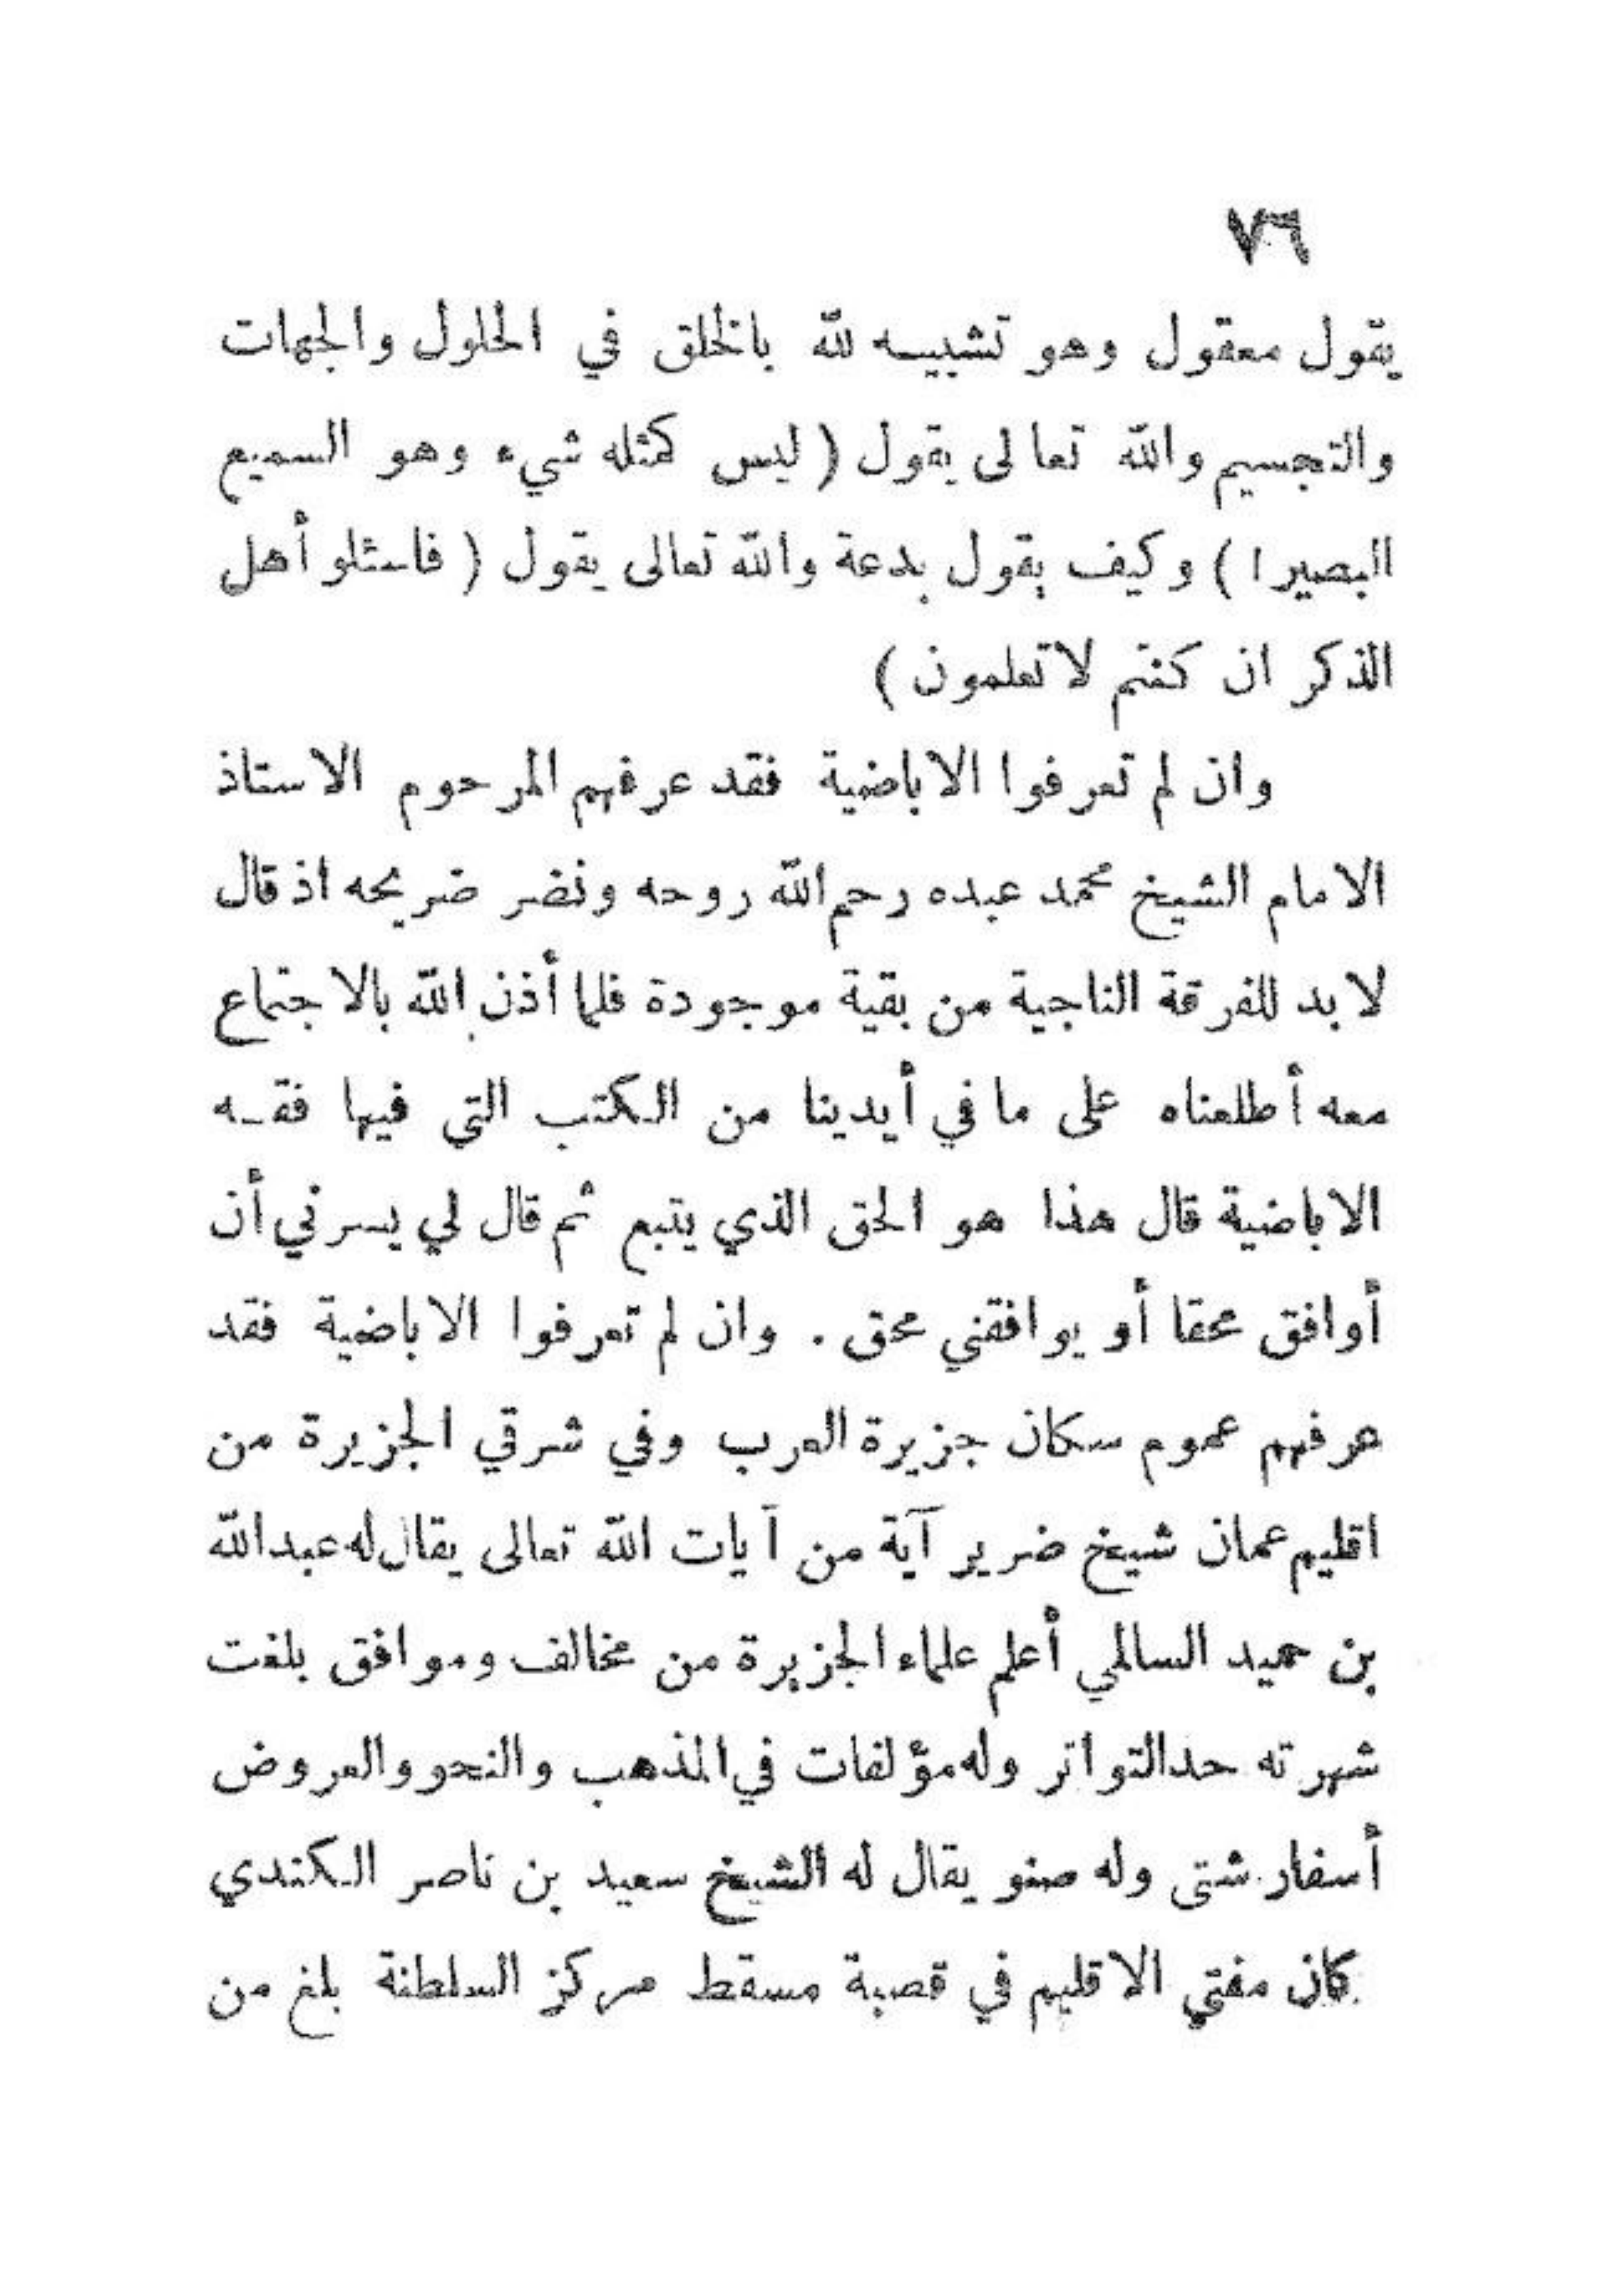 ٧٦
يقول معقول وهو تشبيه لله بالخلق في الحلول والجهات
والتجسيم والله تعالى يقول ( ليس كمثله شيء وهو السميع
البصيرا ) وكيف يقول بدعة والله تعالى يقول ( فاسئلو أهل
الذكر ان كنتم لا تعلمون )
وان لم تعرفوا الاباضية فقد عرفهم المرحوم الاستاذ
الامام الشيخ محمد عبده رحم الله روحه ونضر ضريحه اذ قال
لا بد للفرقة الناجية من بقية موجودة فلما أذن الله بالاجتماع
معه أطلعناه على ما في أيدينا من الكتب التي فيها فقه
الاباضية قال هذا هو الحق الذي يتبع ثم قال لي يسرني أن
أوافق محقا أو يوافقني محق . وان لم تعرفوا الاباضية فقد
عرفهم عموم سكان جزيرة العرب وفي شرقي الجزيرة من
اقليم عمان شيخ ضرير آية من آيات الله تعالى يقال له عبدالله
بن حميد السالمي أعلم علماء الجزيرة من مخالف وموافق بلغت
شهرته حد التواتر وله مؤلفات في المذهب والنحو والعروض
أسفار شتى وله صنو يقال له الشيخ سعيد بن ناصر الكندي
كان مفتي الاقليم في قصبة مسقط مركز السلطنة بلغ من